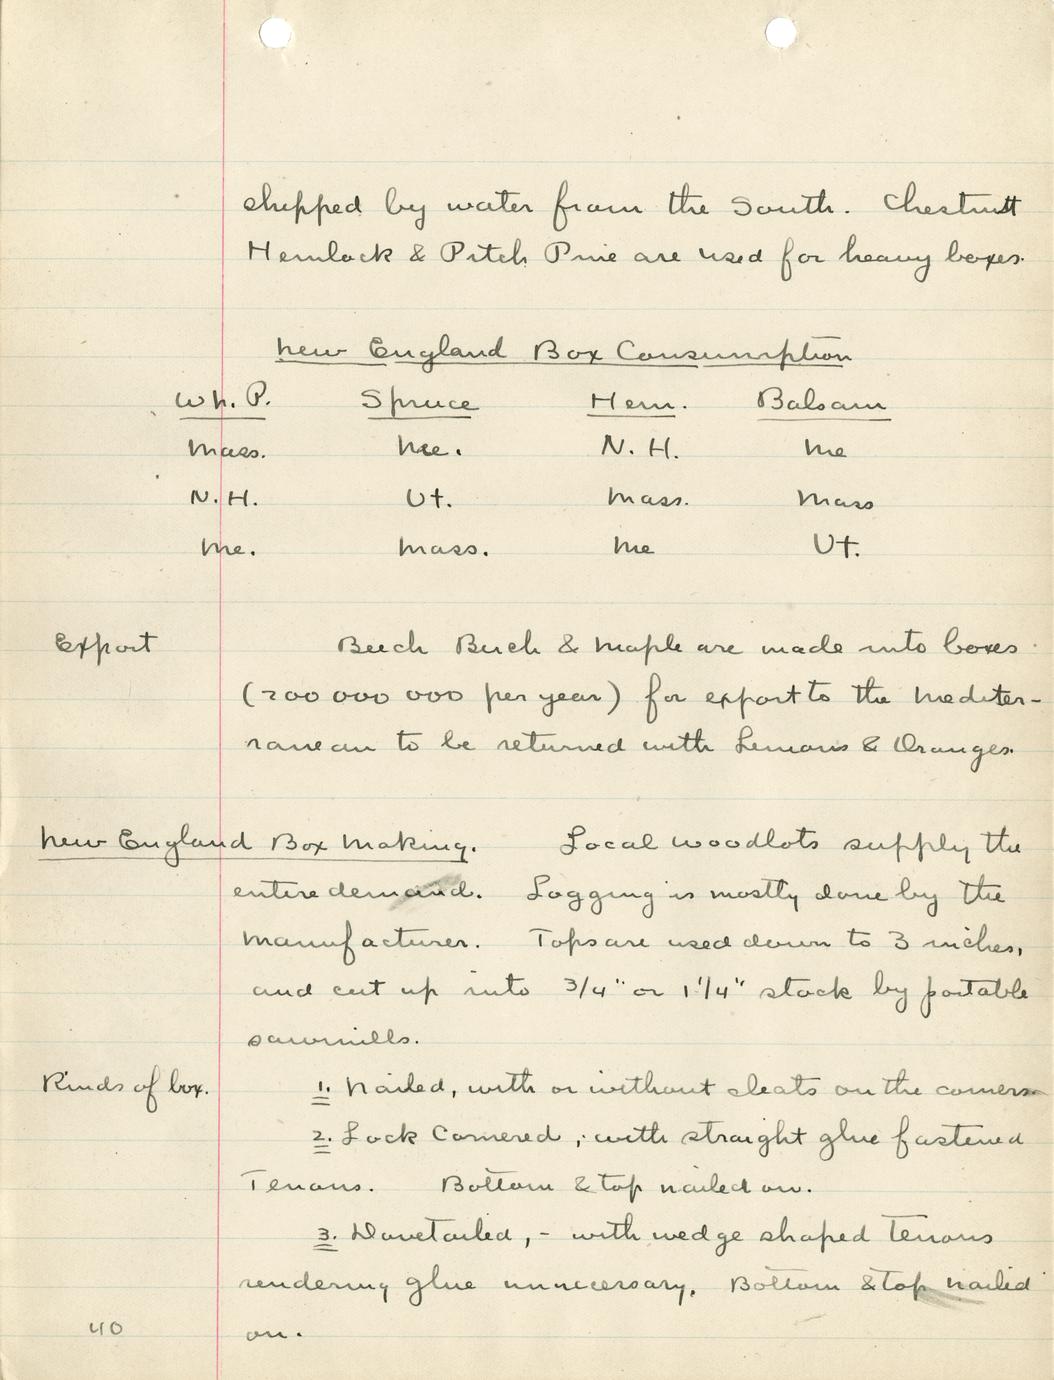 shipped by water from the South. Chestnutt
Hemlock & Pitch Pine are used for heavy boxes.
New England Box Consumption
Wh. P. Spruce Hem. Balsam
Mass. Me. N. H. Me
N. H. Vt. Mass. Mass
Me. Mass. Me Vt.
Export Beech Birch & Maple are made into boxes
(200 000 000 per year) for export to the Mediter-
ranean to be returned with Lemons & Oranges.
New England Box Making. Local woodlots supply the
entire demand. Logging is mostly done by the
manufacturer. Tops are used down to 3 inches,
and cut up into 3/4" or 1 1/4" stock by portable
sawmills.
Kinds of box. 1. Nailed, with or without cleats on the corners.
2. Lock Cornered, with straight glue fastened
Tenons. Bottom & top nailed on.
3. Dovetailed, - with wedge shaped tenons
rendering glue unnecessary. Bottom & top nailed
on.
40